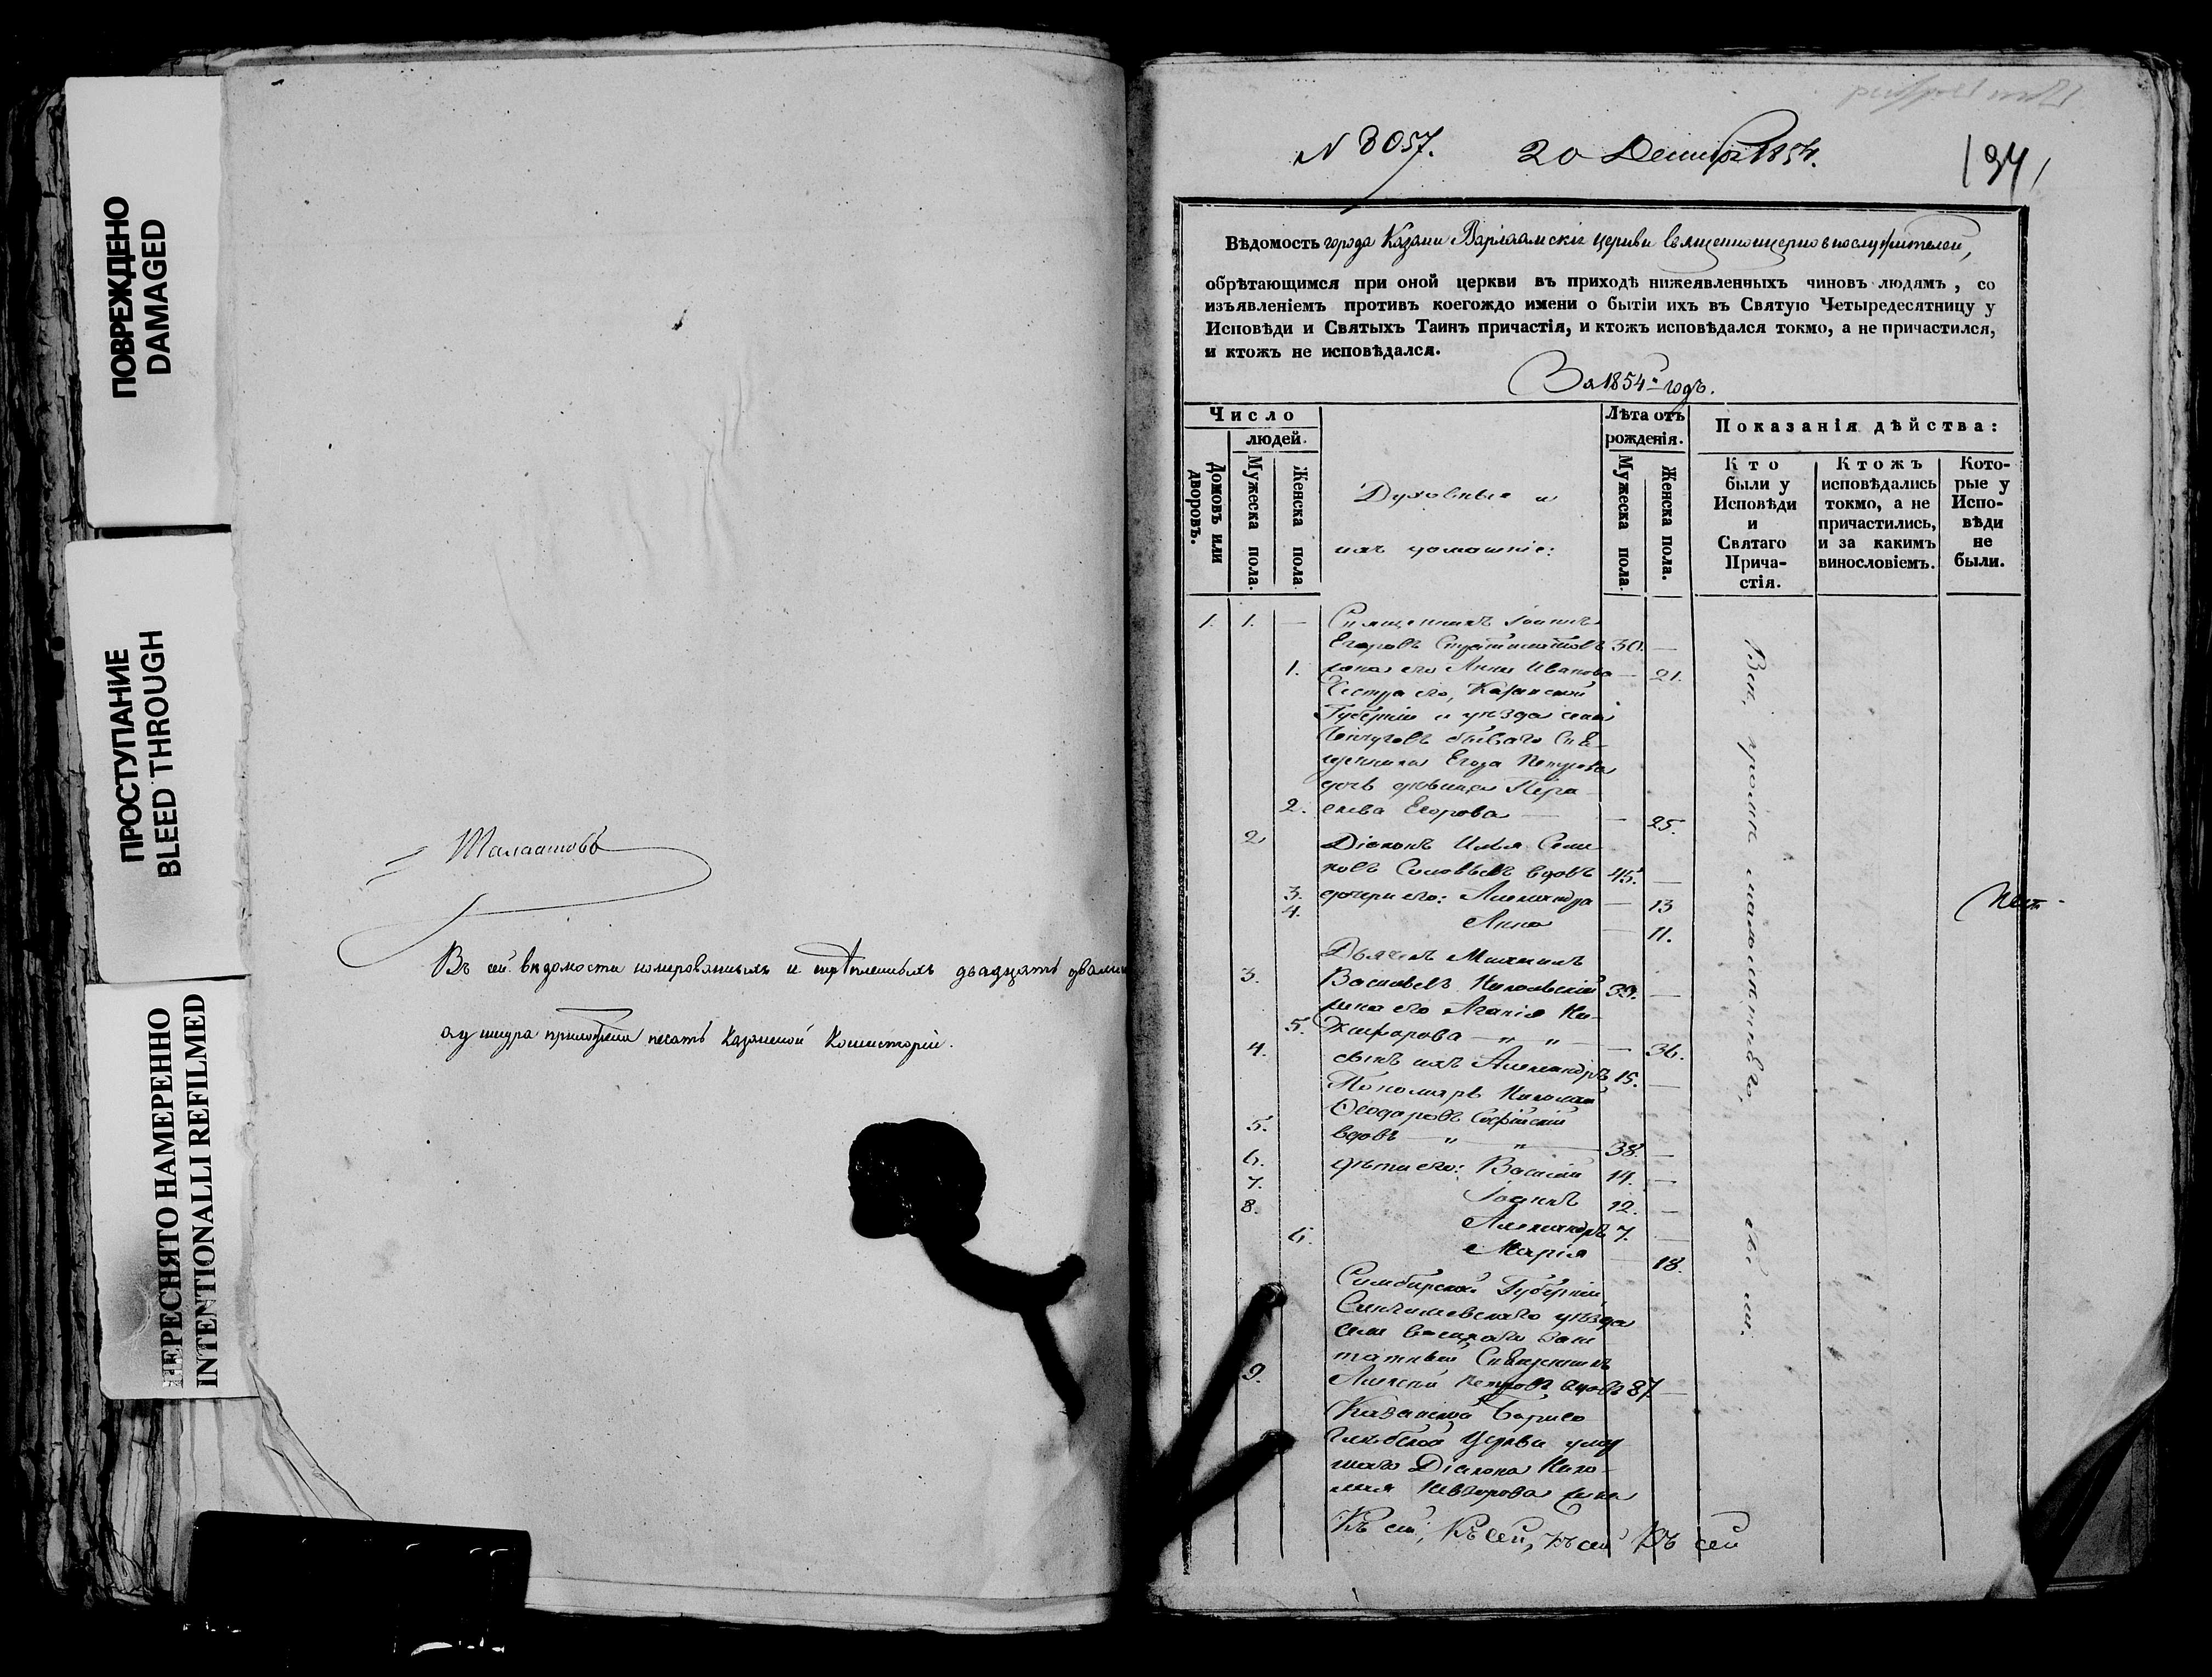 ПОВРЕЖДЕНО
DAMAGED
ПРОСТУПАНИЕ
BLEED THROUGH
ПЕРЕСНЯТО НАМЕРЕННО
INTENTIONALLI REFILMED
Въ сей вѣдомости номерованныхъ и скрѣпленныхъ двадцать два
а у шнура приложена печать Казанской Консисторіи.
N 3057. 20 Декабря 1854.
194
Вѣдомость города Казани Варлаамскія церкви священноцерковнослужителей,
обрѣтающимся при оной церкви въ приходѣ нижеявленныхъ чиновъ людямъ, со
изъявленіемъ противъ коегождо имени о бытіи ихъ въ Святую Четыредесятницу у
Исповѣди и Святыхъ Таинъ причастія, и ктожъ исповѣдался токмо, а не причастился,
и ктожъ не исповѣдался.
За 1854й годъ.
Число
людей.
Домовъ или дворовъ.
Мужеска пола.
Женска пола
Духовные и
ихъ домашніе:
Лѣта отъ
рожденія.
Мужеска пола.
Женска пола.
Показанія дѣйства:
Кто
были у
Исповѣди
и
Святаго
Прича-
стія.
Ктожъ
исповѣдались
токмо, а не
причастились,
и за какимъ
винословіемъ.
Кото-
рые у
Испо-
вѣди
не
были.
1. 1. — Священникъ Іоаннъ
Егоровъ 30. —
1. жена его Анна Иванова — 21.
Сестра его, Казанской
Губерніи и уѣзда села
бывшаго Свя-
щенника Егора Петрова
дочь дѣвица Пара
2. скева Егорова — — 25.
2 Діаконъ Илья Семе
новъ Соловьевъ вдовъ 45. —
3. дочери его: Александра — 13
4. Анна — 11.
Дьячекъ Михаилъ
3. Васильевъ Никольскій 39. —
жена его Агапія Ни-
5. кифорова — " " — — 36.
4. сынъ ихъ Александръ 15. —
Пономарь Николай
Ѳеодоровъ Софійскій
5. вдовъ — " — " — 38. —
6. дѣти его: Василій 14. —
7. Іоаннъ 12. —
8. Александръ 7. —
6. Марія — 18.
Симбирской Губерніи,
уѣзда
села зашт
татный Священникъ
9. Алексѣй Петровъ вдовъ 87 —
Казанской Борисо
глѣбской Церкви умер
шаго Діакона жена
Къ сей, Къ сей, Къ сей Къ сей
Всѣ, кромѣ малолѣтняго,
были.
Нѣтъ